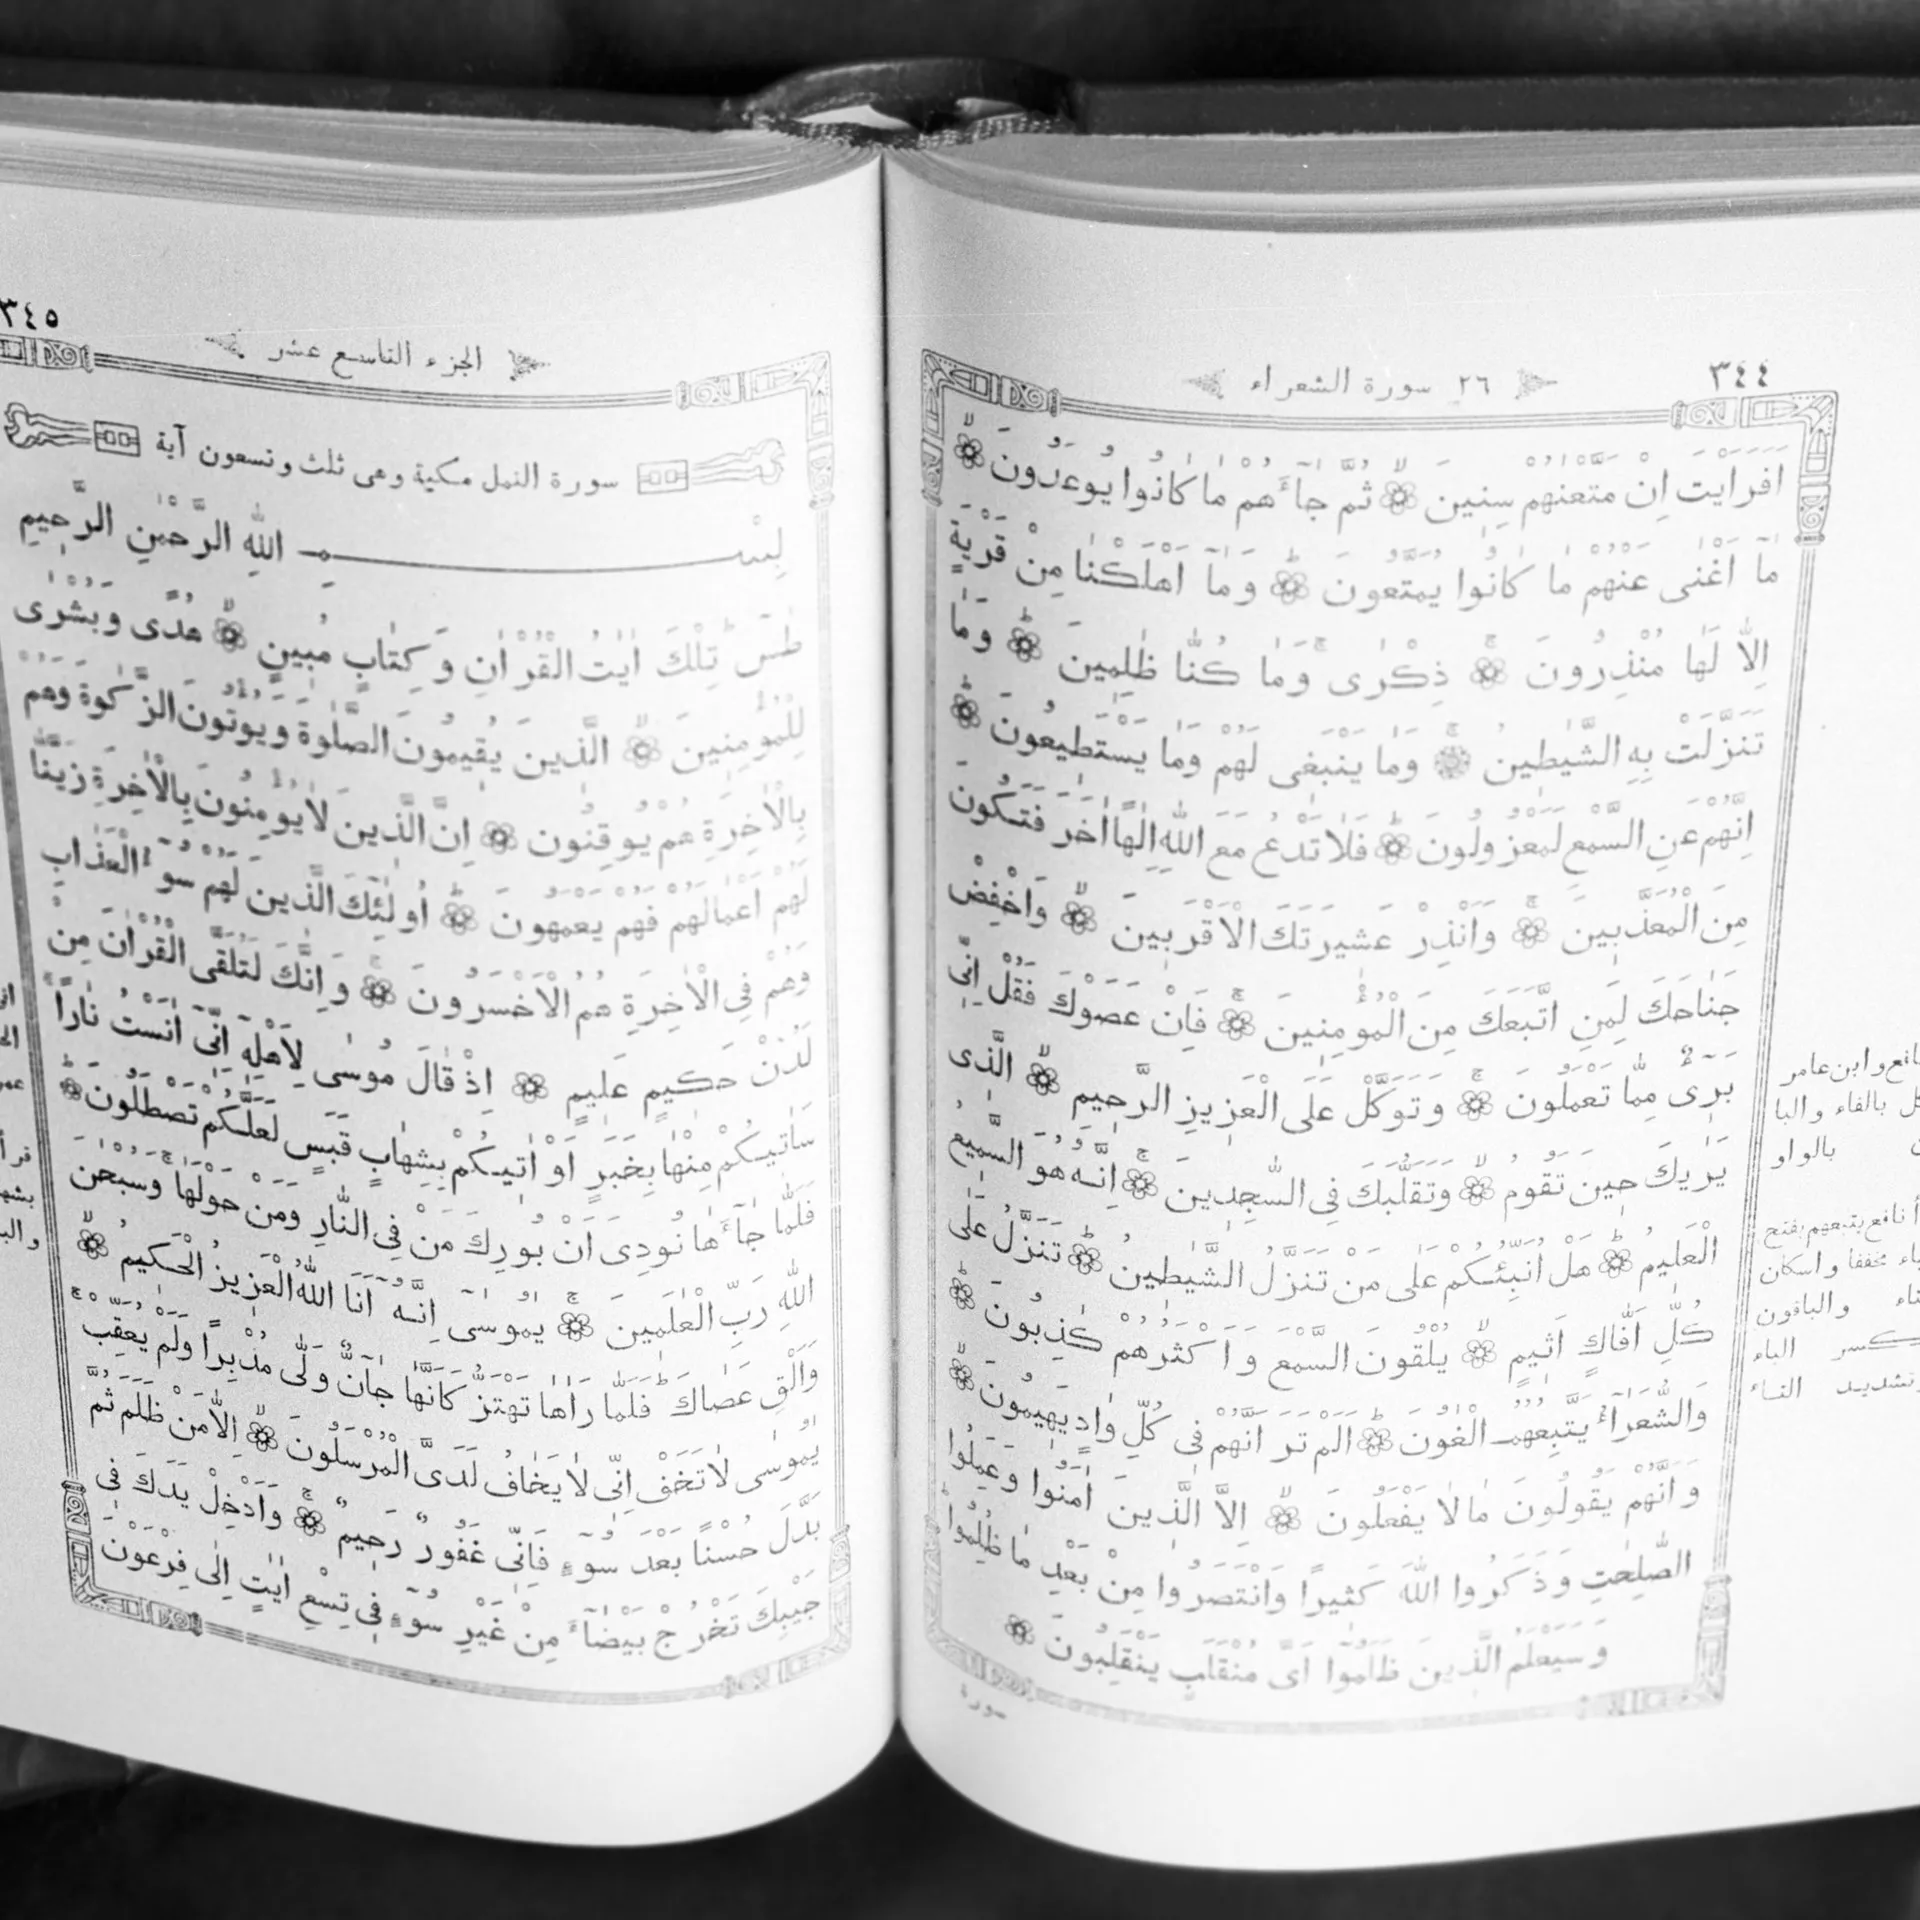 ٣٤٤
٢٦ سورة الشعراء
اَفَرَاَيْتَ اِنْ مَتَّعْنٰهُمْ سِنِينَ ثُمَّ جَٓاءَهُمْ مٰا كٰانُوا يُوعَدُونَ
مٰٓا اَغْنٰى عَنْهُمْ مٰا كٰانُوا يُمَتَّعُونَ وَمٰٓا اَهْلَكْنٰا مِنْ قَرْيَةٍ
اِلّٰا لَهٰا مُنْذِرُونَ ذِكْرٰى وَمٰا كُنّٰا ظٰلِمِينَ وَمٰا
تَنَزَّلَتْ بِهِ الشَّيٰطِينُ وَمٰا يَنْبَغِى لَهُمْ وَمٰا يَسْتَطِيعُونَ
اِنَّهُمْ عَنِ السَّمْعِ لَمَعْزُولُونَ فَلٰا تَدْعُ مَعَ اللّٰهِ اِلٰهًا اٰخَرَ فَتَكُونَ
مِنَ الْمُعَذَّبِينَ وَاَنْذِرْ عَشِيرَتَكَ الْاَقْرَبِينَ وَاخْفِضْ
جَنٰاحَكَ لِمَنِ اتَّبَعَكَ مِنَ الْمُؤْمِنِينَ فَاِنْ عَصَوْكَ فَقُلْ اِنِّى
بَرِىٓءٌ مِمّٰا تَعْمَلُونَ وَتَوَكَّلْ عَلَى الْعَزِيزِ الرَّحِيمِ الَّذِى
يَرٰيكَ حِينَ تَقُومُ وَتَقَلُّبَكَ فِى السّٰجِدِينَ اِنَّهُ هُوَ السَّمِيعُ
الْعَلِيمُ هَلْ اُنَبِّئُكُمْ عَلٰى مَنْ تَنَزَّلُ الشَّيٰطِينُ تَنَزَّلُ عَلٰى
كُلِّ اَفّٰاكٍ اَثِيمٍ يُلْقُونَ السَّمْعَ وَاَكْثَرُهُمْ كٰذِبُونَ
وَالشُّعَرٰٓاءُ يَتَّبِعُهُمُ الْغٰوُنَ اَلَمْ تَرَ اَنَّهُمْ فِى كُلِّ وٰادٍ يَهِيمُونَ
وَاَنَّهُمْ يَقُولُونَ مٰا لٰا يَفْعَلُونَ اِلَّا الَّذِينَ اٰمَنُوا وَعَمِلُوا
الصّٰلِحٰتِ وَذَكَرُوا اللّٰهَ كَثِيرًا وَانْتَصَرُوا مِنْ بَعْدِ مٰا ظُلِمُوا
وَسَيَعْلَمُ الَّذِينَ ظَلَمُٓوا اَىَّ مُنْقَلَبٍ يَنْقَلِبُونَ
سورة
وابن عامر
بالفاء والبا
بالواو
نافع يتبعهم بفتح
مخففا واسكان
والباقون
الباء
وتشديد التاء
٣٤٥
الجزء التاسع عشر
سورة النمل مكية وهى ثلث وتسعون آية
بِسْمِ اللّٰهِ الرَّحْمٰنِ الرَّحِيمِ
طٰسٓ تِلْكَ اٰيٰتُ الْقُرْاٰنِ وَكِتٰابٍ مُبِينٍ هُدًى وَبُشْرٰى
لِلْمُؤْمِنِينَ الَّذِينَ يُقِيمُونَ الصَّلٰوةَ وَيُؤْتُونَ الزَّكٰوةَ وَهُمْ
بِالْاٰخِرَةِ هُمْ يُوقِنُونَ اِنَّ الَّذِينَ لٰا يُؤْمِنُونَ بِالْاٰخِرَةِ زَيَّنّٰا
لَهُمْ اَعْمٰالَهُمْ فَهُمْ يَعْمَهُونَ اُولٰٓئِكَ الَّذِينَ لَهُمْ سُٓوءُ الْعَذٰابِ
وَهُمْ فِى الْاٰخِرَةِ هُمُ الْاَخْسَرُونَ وَاِنَّكَ لَتُلَقَّى الْقُرْاٰنَ مِنْ
لَدُنْ حَكِيمٍ عَلِيمٍ اِذْ قٰالَ مُوسٰى لِاَهْلِهِ اِنِّٓى اٰنَسْتُ نٰارًا
سَاٰتِيكُمْ مِنْهٰا بِخَبَرٍ اَوْ اٰتِيكُمْ بِشِهٰابٍ قَبَسٍ لَعَلَّكُمْ تَصْطَلُونَ
فَلَمّٰا جٰٓاءَهٰا نُودِىَ اَنْ بُورِكَ مَنْ فِى النّٰارِ وَمَنْ حَوْلَهٰا وَسُبْحٰنَ
اللّٰهِ رَبِّ الْعٰلَمِينَ يٰمُوسٰٓى اِنَّهُٓ اَنَا اللّٰهُ الْعَزِيزُ الْحَكِيمُ
وَاَلْقِ عَصٰاكَ فَلَمّٰا رَاٰهٰا تَهْتَزُّ كَاَنَّهٰا جٰٓانٌّ وَلّٰى مُدْبِرًا وَلَمْ يُعَقِّبْ
يٰمُوسٰى لٰا تَخَفْ اِنِّى لٰا يَخٰافُ لَدَىَّ الْمُرْسَلُونَ اِلّٰا مَنْ ظَلَمَ ثُمَّ
بَدَّلَ حُسْنًا بَعْدَ سُٓوءٍ فَاِنِّى غَفُورٌ رَحِيمٌ وَاَدْخِلْ يَدَكَ فِى
جَيْبِكَ تَخْرُجْ بَيْضٰٓاءَ مِنْ غَيْرِ سُٓوءٍ فِى تِسْعِ اٰيٰتٍ اِلٰى فِرْعَوْنَ